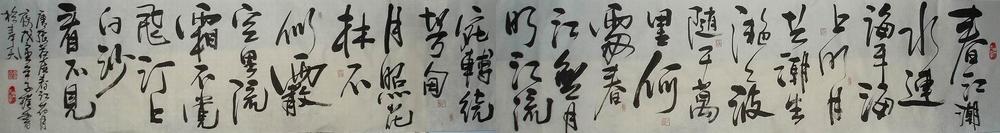 春江潮
水連
海平海
上明月
共潮生
灧灧波
随千萬
里何
處春
江無月
明江流
宛轉繞
芳甸
月照花
林不
似霰
空里流
霜不覺
飛汀上
白沙
看不見
唐張若虚春江花月